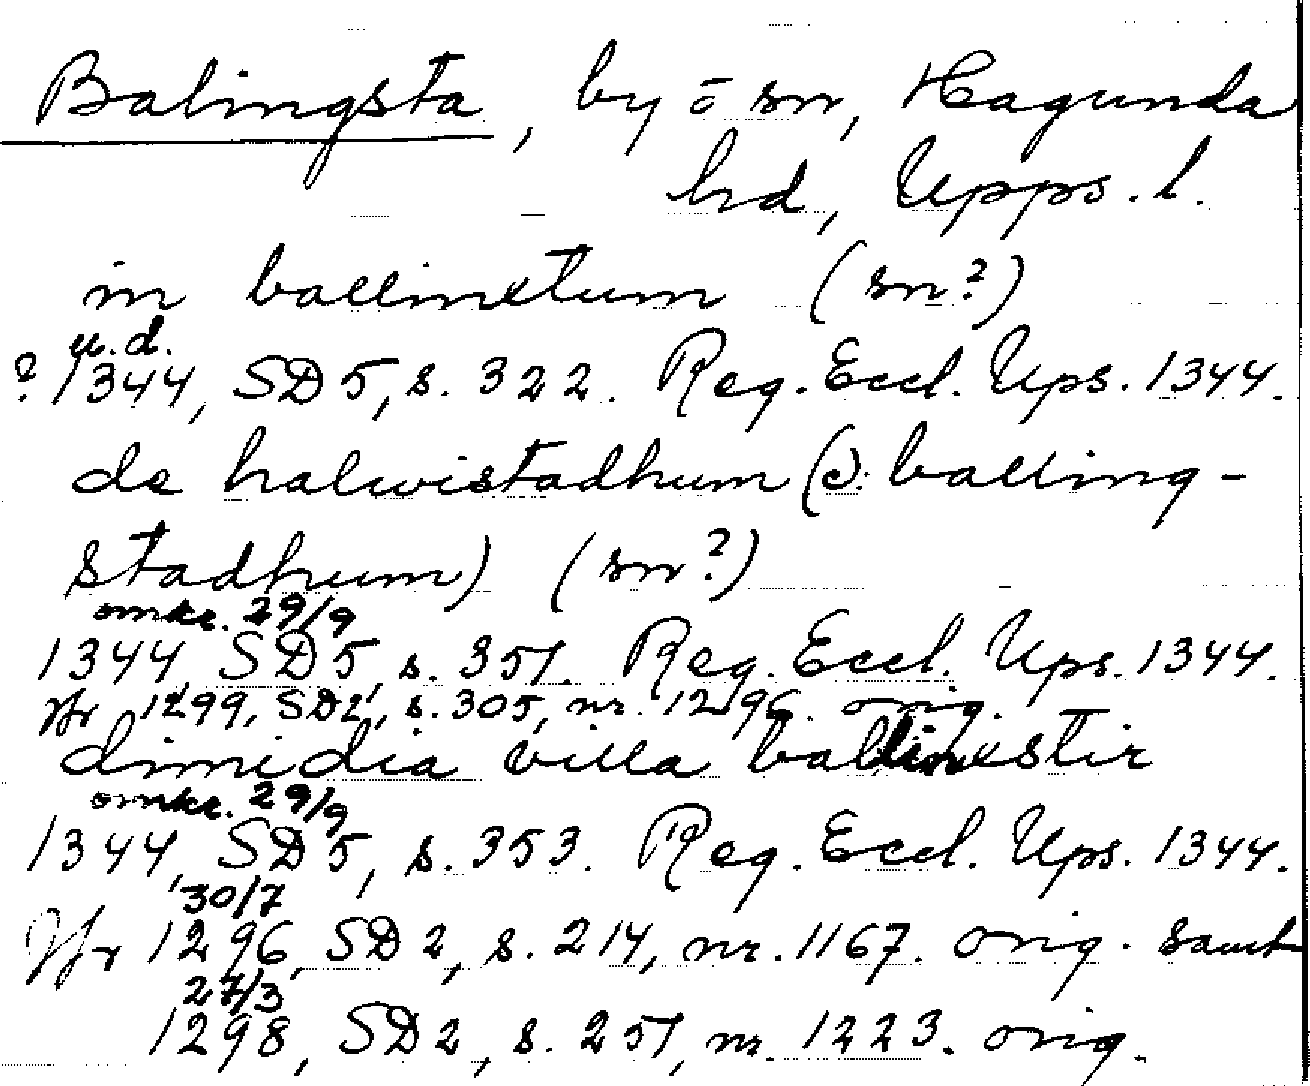 Balingsta, by o sn, Hagunda
hrd, Upps. l.
in ballinxtum (sn?)
u.d.
? 1344, SD 5, s. 322. Reg. Eccl. Ups. 1344.
de halwistadhum (ɔ: balling-
stadhum) (sn?)
omkr. 29/9
1344, SD 5, s. 351. Reg. Eccl. Ups. 1344.
Jfr 1299, SD2, s. 305, nr. 1296. orig.
dimidia villa ballinxstir
omkr. 29/9
1344, SD 5, s. 353. Reg. Eccl. Ups. 1344.
30/7
Jfr 1296, SD 2, s. 214, nr. 1167. orig. samt
27/3
1298, SD 2, s. 251, nr. 1223. orig.